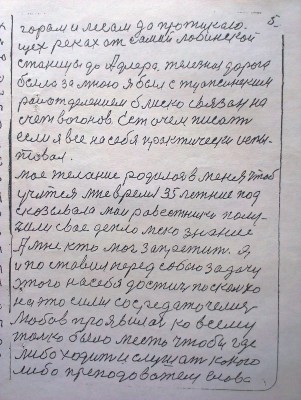 5
горам и лесам до
щех реках от самой лобинской
станицы до Адлера, дорога
было за мною я был с туапсинским
рай отделением блиско связан на
счет вогонов Ест о чем писати
если я все на себя практически испы
товал.
мое желание родилос в меня чтоб
учится мне время 35 летние под
сказывала мои работники полу
чили свае депло мско знание
А мне кто мог запретит. Я
и поставил перед собою задачу
этого на себя достич по сколко
на это сили сосредаточелиц
Любов проявилас ко всему
толко было место чтобы где
либо ходит и слушат какого
либо преподователя слова